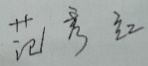 范秀红